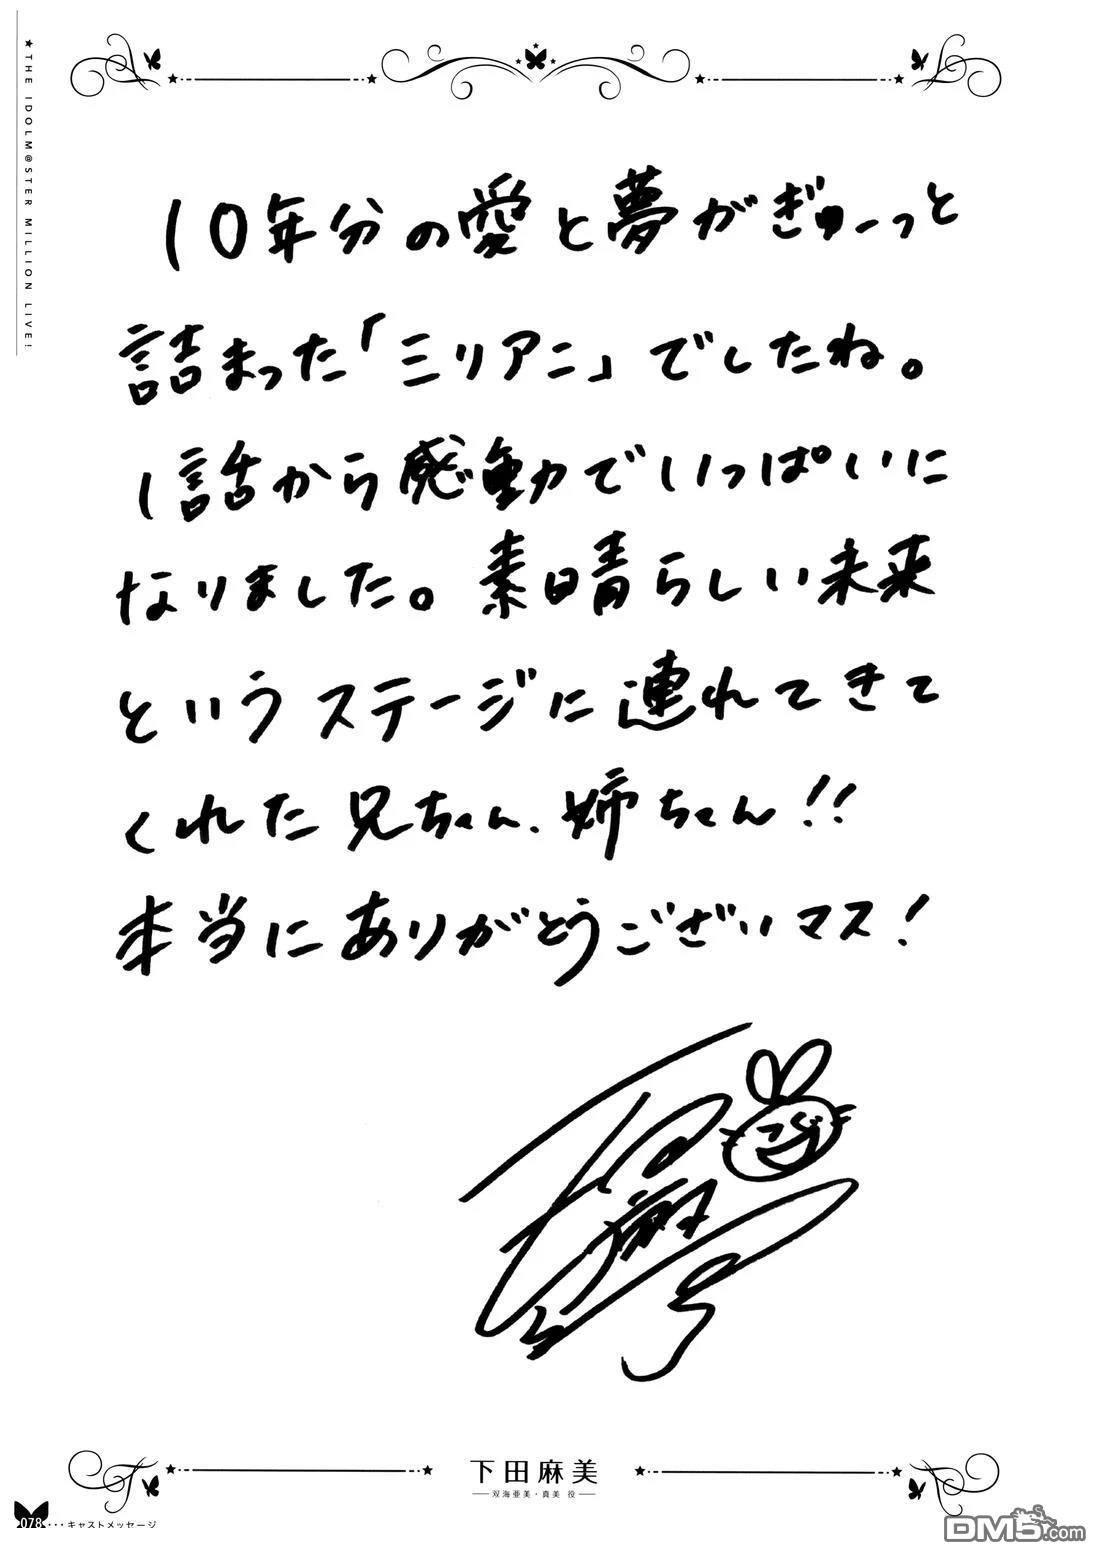 ★THE IDOLM@STER MILLION LIVE!
10年分の愛と夢がぎゅーっと
詰まった「ミリアニ」でしたね。
1話から感動でいっぱいに
なりました。素晴らしい未来
というステージに連れてきて
くれた兄ちゃん、姉ちゃん!!
本当にありがとうございマス!
下田麻美
双海亜美・真美 役
078・・・キャストメッセージ
DM5.com